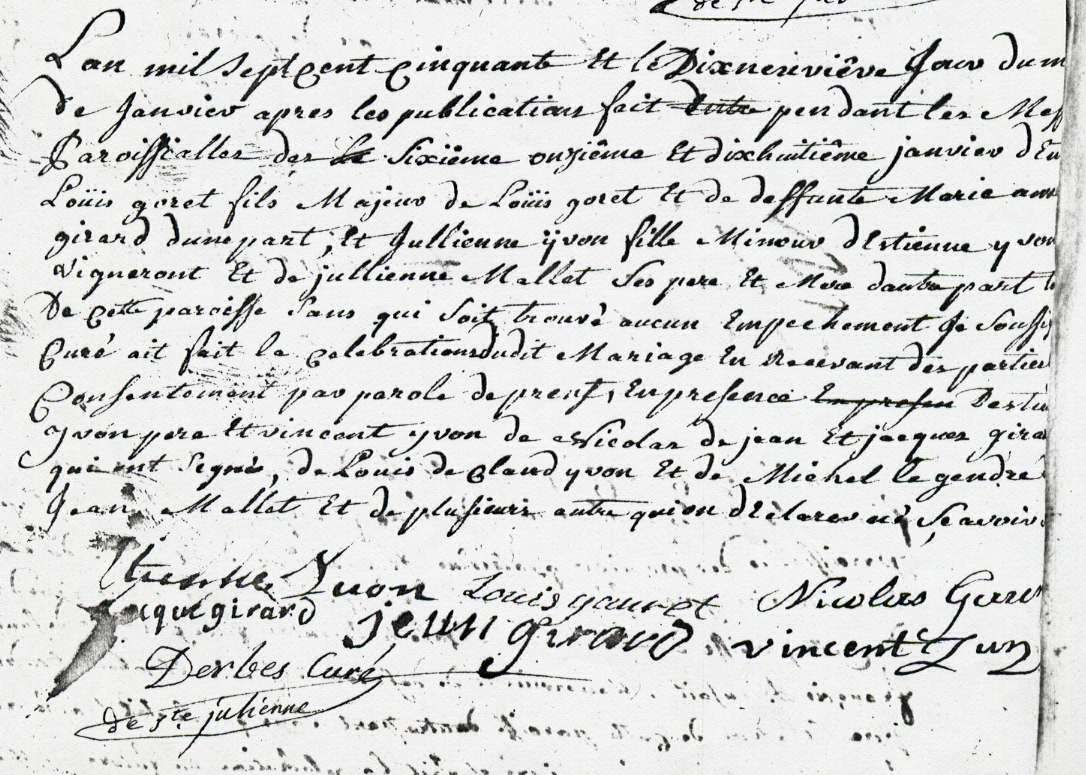 de ste
Lan mil sept Cent Cinquante Et le Dixneuvième Jour du m
de Janvier apres les publications fait Entre pendant les Mess
Paroissialles des Le Sixième onzième Et dixhuitième janvier d'En
Loüis goret fils Majeur de Loüis goret Et de deffunte Marie ann
girard dune part ; Et Jullienne yvon fille Mineur dEstienne yvon
vigneront Et de jullienne Mallet Ses pere Et Mere dautre part
De Cette paroisse Sans qui Soit trouvé aucun Empechement Je Souss
Curé ait fait la Celebration dudit Mariage En Recevant des parties
Consentement par parole de prest, En presence En presen Destie
yvon pere Et vincent yvon de Nicolas de jean Et jacques gira
qui ont Signé, de Louis de Claud yvon Et de Michel le gendre
Jean Mallet Et de plusieurs autre qui on dEclarer né Sçavoir
Etienne Yvon Louis gauret Nicolas
aque girard jean Girard vincent Ivon
Derbes Curé
de ste julienne